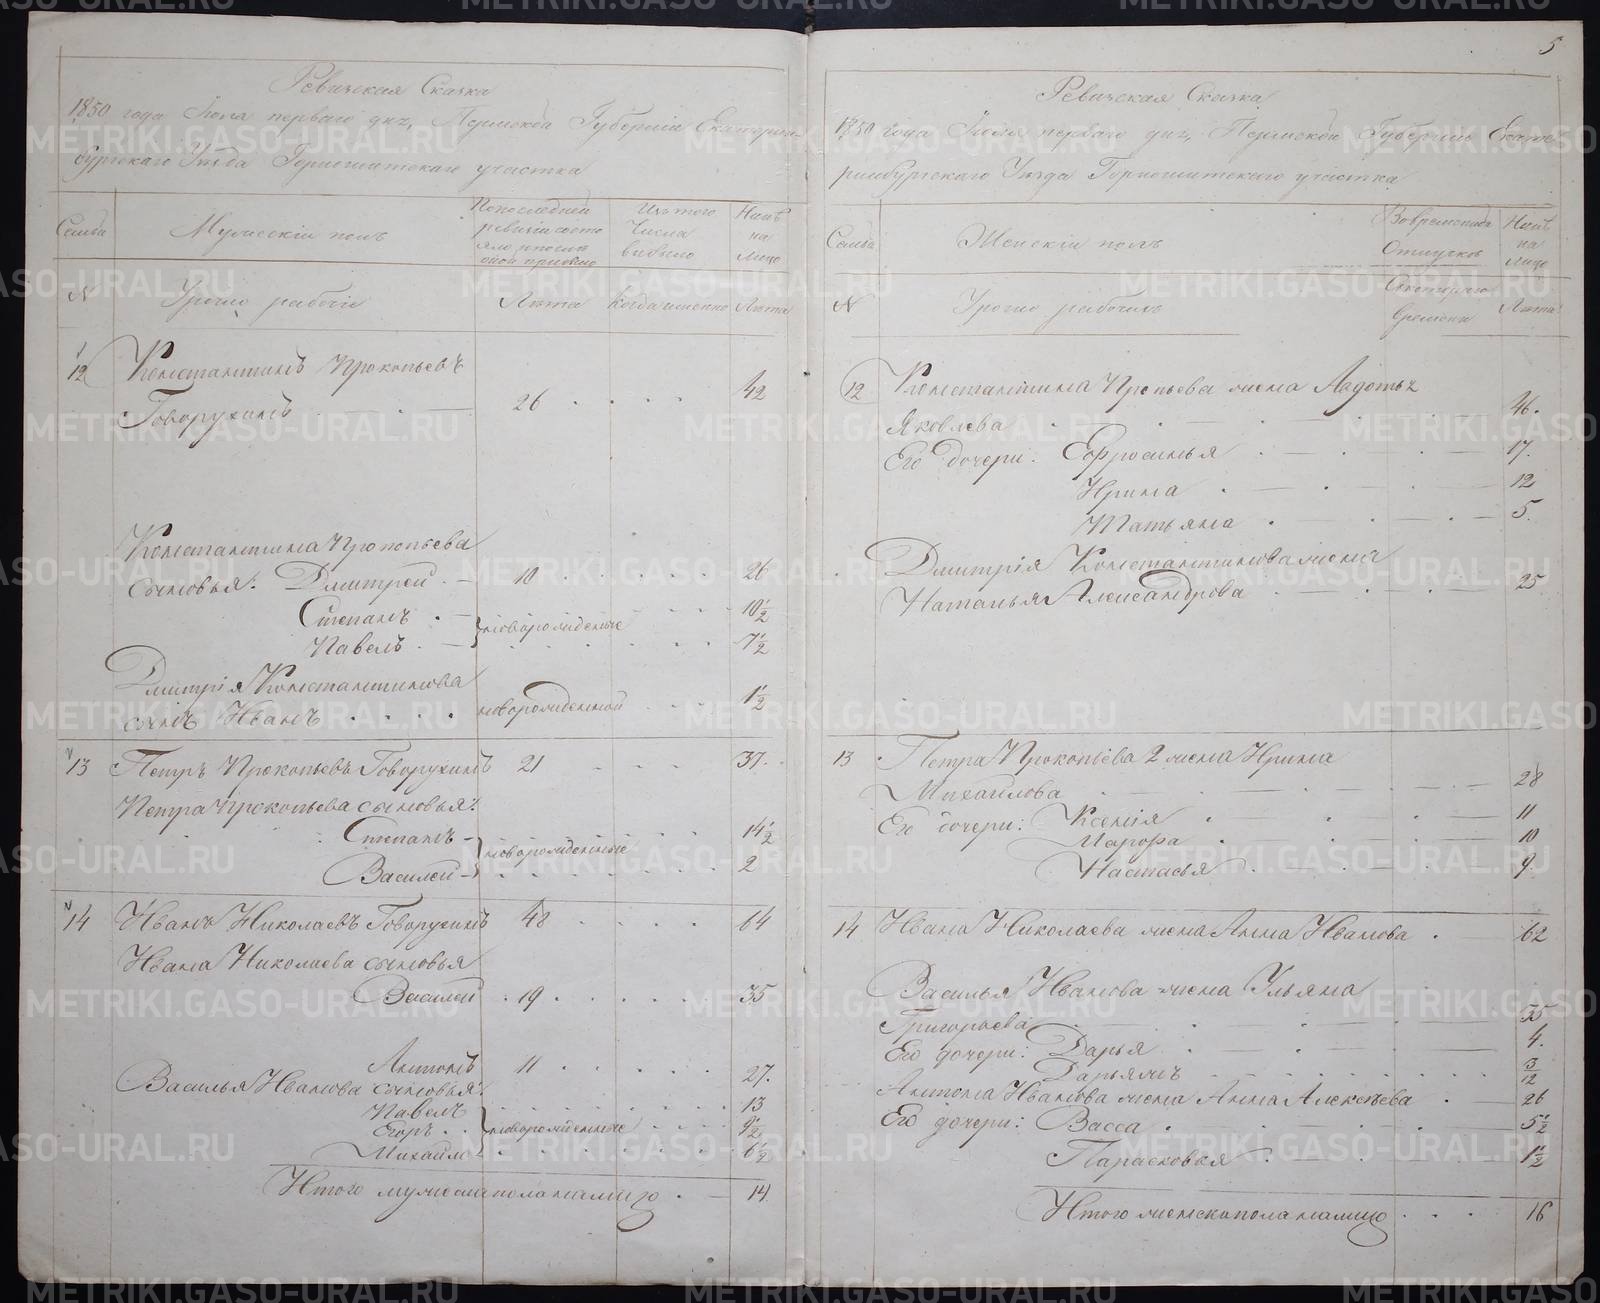 Ревизская Сказка
1850 года Іюля перваго дня, Пермской Губерніи Екатерин
бургскаго Уѣзда Горнощитскаго участка
Семьи
Мужескій полъ
По последней
ревизіи состо
яло и после
оной прибыло
Изъ того
числа
выбыло
Нынѣ
на
лицо
N
Урочно рабочіе
Лѣта
Когда именно
Лѣта
12
Константинъ Прокопьевъ
Говорухинъ
26
42
Константина Прокопьева
сыновья: Дмитрей
10
26
Степанъ
новорожденные
10 1/2
Павелъ
7 1/2
Дмитрія Константинова
сынъ Иванъ
новорожденной
1 1/2
13
Петръ Прокопьевъ Говорухинъ
21
37
Петра Прокопьева сыновья:
Степанъ
новорожденные
14 1/2
Василей
2
14
Иванъ Николаевъ Говорухинъ
48
64
Ивана Николаева сыновья
Василей
19
35
Антонъ
11
27
Василья Иванова сыновья:
Павелъ
13
Егоръ
новорожденные
9 1/2
Михайло
6 1/2
Итого мужеска пола налицо
14
5
Ревизская Сказка
1850 года Іюля перваго дня, Пермской Губерніи Екате
ринбургскаго Уѣзда Горнощитскаго участка
Семьи
Женскій полъ
Во временной
Отлучкѣ
Нынѣ
на
лицо
N
Урочно рабочихъ
Съ котораго
времени
Лѣта
12
Константина Пропьева жена Авдотья
Яковлева
46
Его дочери: Ефросинья
17
Ирина
12
Татьяна
5
Дмитрія Константинова жена
Наталья Александрова
25
13
Петра Прокопьева 2 жена Ирина
Михайлова
28
Его дочери: Ксенія
11
Марфа
10
Настасья
9
14
Ивана Николаева жена Анна Иванова
62
Василья Иванова жена Ульяна
Григорьева
35
Его дочери: Дарья
4
3/12
Антона Иванова жена Анна Алексѣева
26
Его дочери: Васса
5 1/2
Парасковья
1 1/2
Итого женска пола налицо
16
METRIKI.GASO-URAL.RU